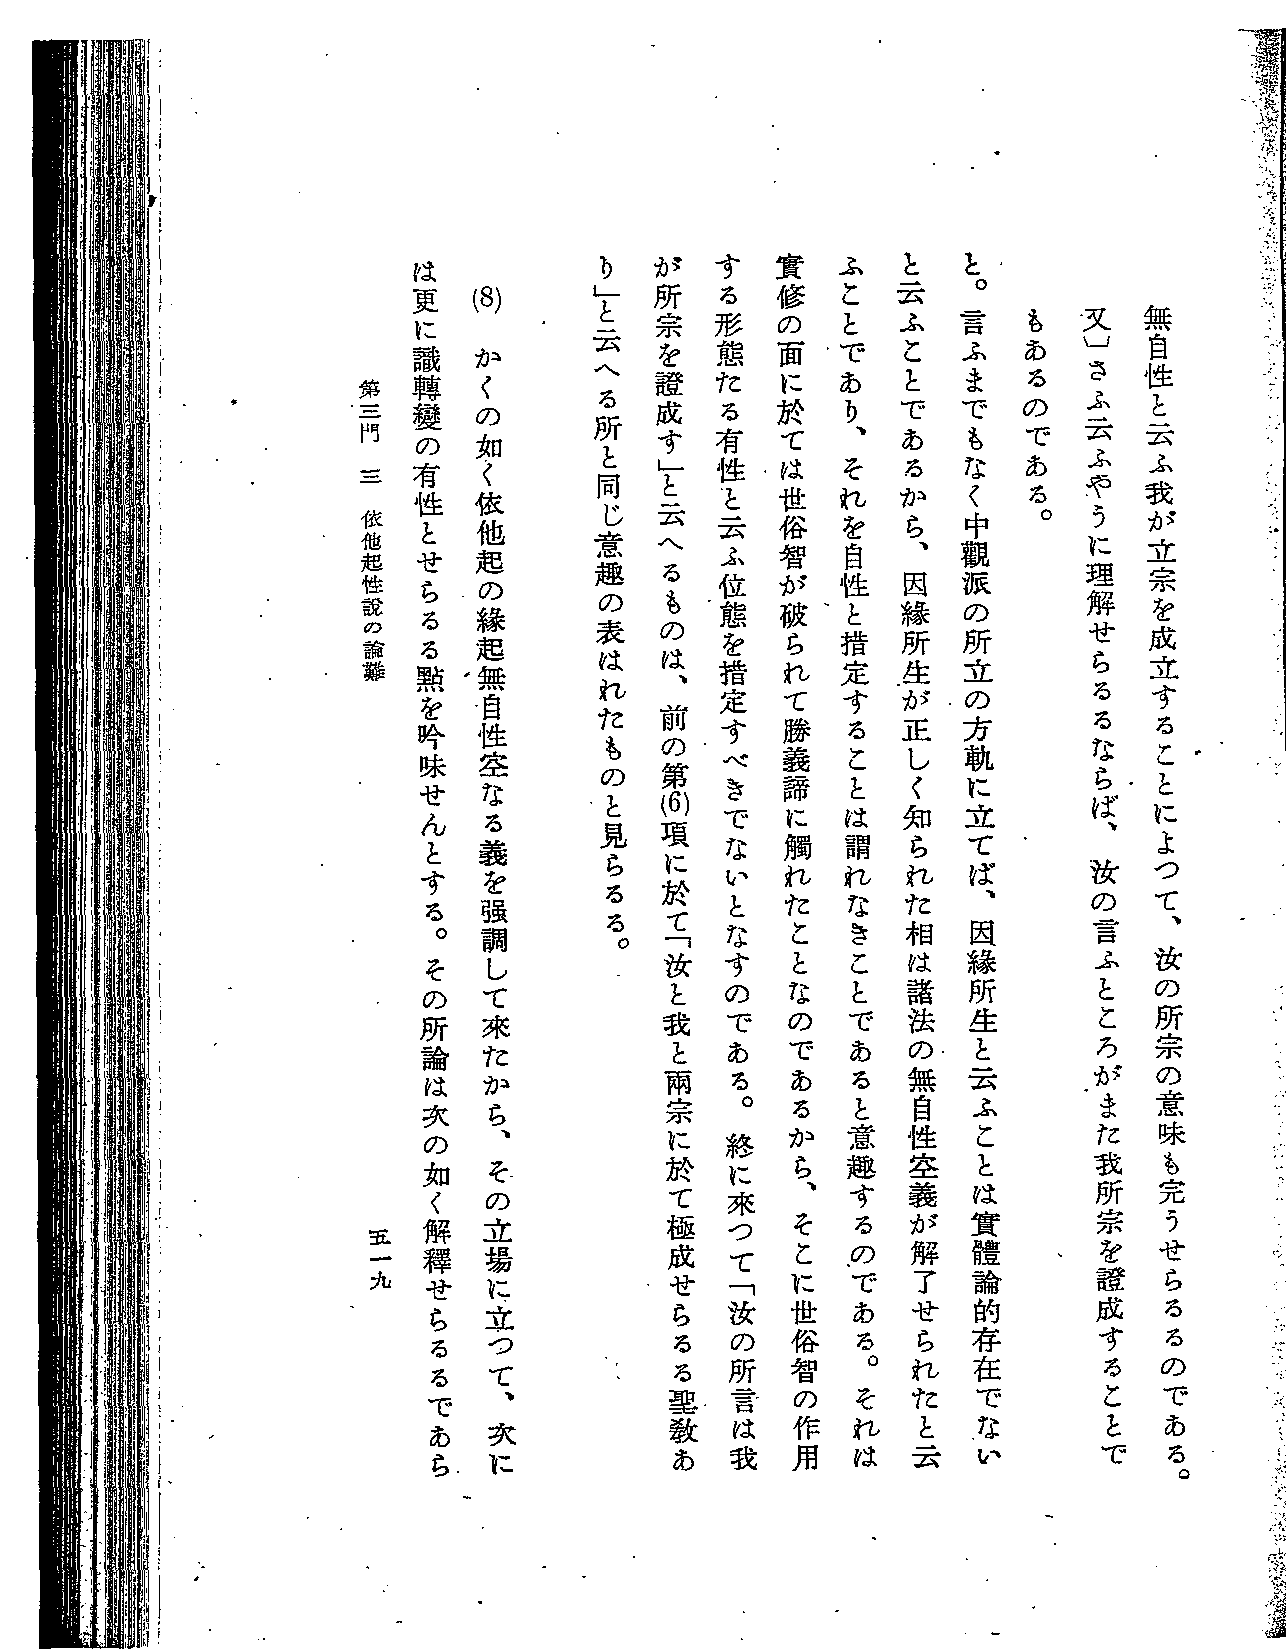 無自性と云ふ我が立宗を成立することによつて、汝の所宗の意味も完うせらるるのである。
又〕さふ云ふやうに理解せらるるならば、汝の言ふところがまた我所宗を證成することで
もあるのである。
と。言ふまでもなく中觀派の所立の方軌に立てば、因緣所生と云ふことは實體論的存在でない
と云ふことであるから、因緣所生が正しく知られた相は諸法の無自性空義が解了せられたと云
ふことであり、それを自性と措定することは謂れなきことであると意趣するのである。それは
實修の面に於ては世俗智が破られて勝義諦に觸れたことなのであるから、そこに世俗智の作用
する形態たる有性と云ふ位態を措定すべきでないとなすのである。終に來つて「汝の所言は我
が所宗を證成す」と云へるものは、前の第(6)項に於て「汝と我と兩宗に於て極成せらるる聖教あ
り」と云へる所と同じ意趣の表はれたものと見らるる。
(8)　かくの如く依他起の緣起無自性空なる義を强調して來たから、その立場に立つて、次に
は更に識轉變の有性とせらるる點を吟味せんとする。その所論は次の如く解釋せらるるであら
第三門　三　依他起性說の論難
五一九